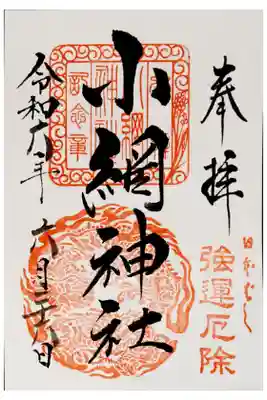 奉拝
日本ばし
強運厄除
小網神社
令和六年
六月二十六日